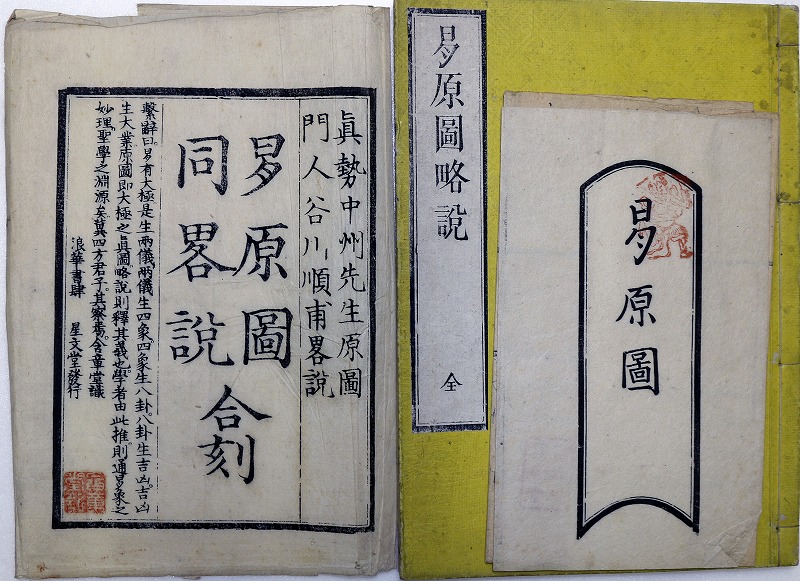 眞勢中州先生原圖
門人谷川順甫畧說
易原圖
同畧說
合刻
繫辭曰。易有大極。是生兩儀。兩儀生四象。四象生八卦。八卦生吉凶。吉凶
生大業。原圖卽大極之眞圖。略說則釋其義也。學者由此推。則通易象之
妙理。聖學之淵源矣。冀四方君子。其察焉。含章堂識
浪華書肆 星文堂發行
易原圖略說 全
易原圖